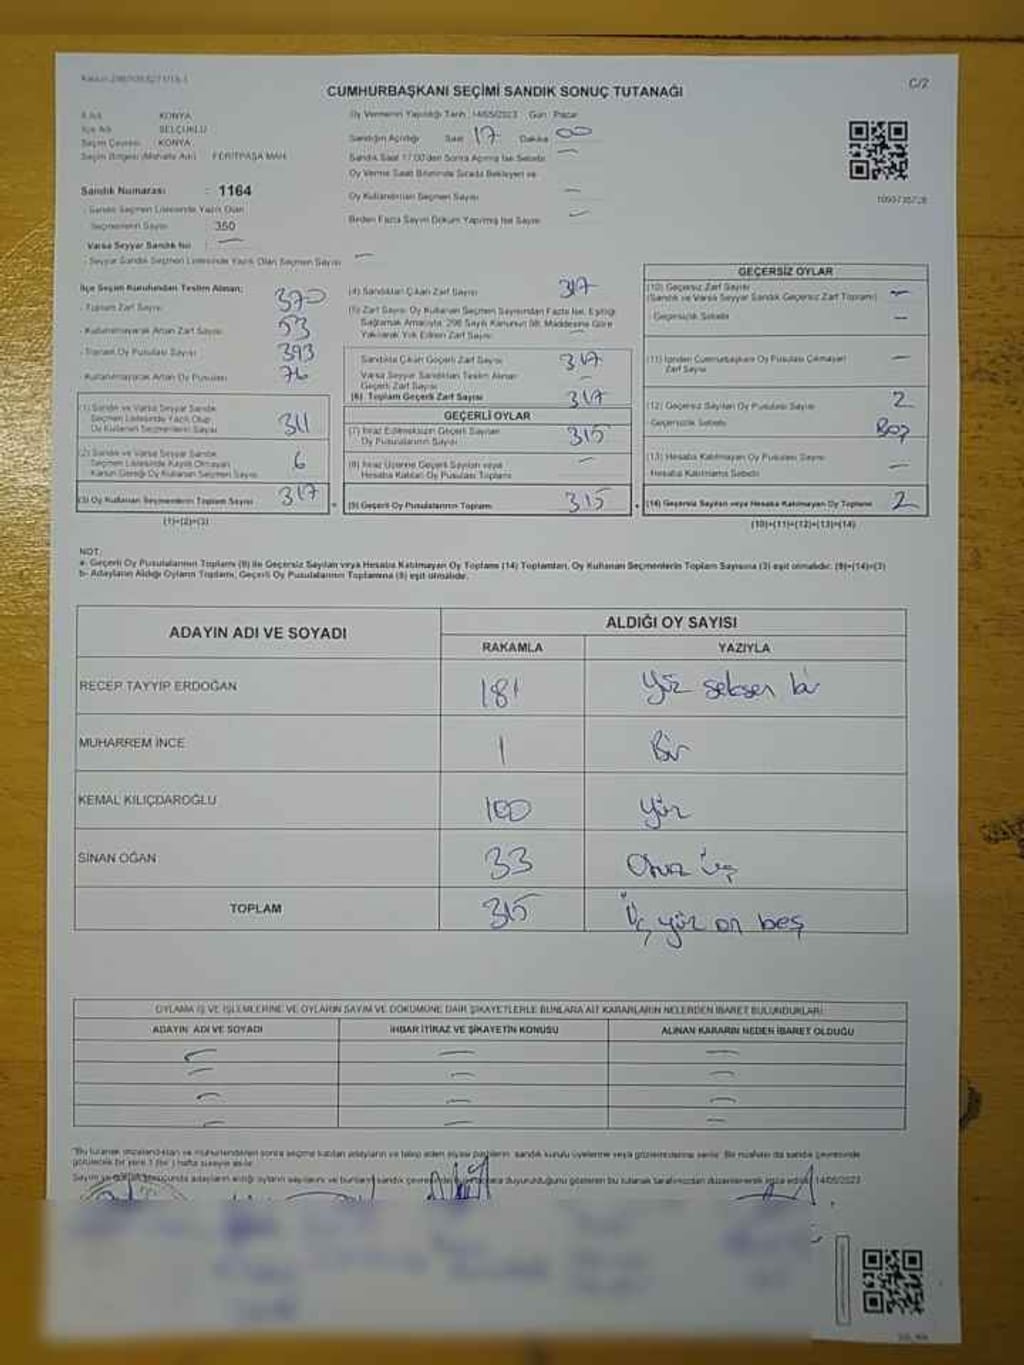 C/2
CUMHURBAŞKANI SEÇİMİ SANDIK SONUÇ TUTANAĞI
İl Adı : KONYA
İlçe Adı : SELÇUKLU
Seçim Çevresi : KONYA
Seçim Bölgesi (Mahalle Adı) : FERİTPAŞA MAH.
Oy Vermenin Yapıldığı Tarih : 14/05/2023 Gün : Pazar
Sandığın Açıldığı Saat 17 Dakika 00
Sandık Saat 17:00'den Sonra Açılmış İse Sebebi —
Oy Verme Saati Bitiminde Sırada Bekleyen ve
Oy Kullandırılan Seçmen Sayısı —
Birden Fazla Sayım Döküm Yapılmış İse Sayısı —
Sandık Numarası : 1164
- Sandık Seçmen Listesinde Yazılı Olan
Seçmenlerin Sayısı : 350
Varsa Seyyar Sandık No : —
- Seyyar Sandık Seçmen Listesinde Yazılı Olan Seçmen Sayısı —
İlçe Seçim Kurulundan Teslim Alınan;
- Toplam Zarf Sayısı 370
- Kullanılmayarak Artan Zarf Sayısı 53
- Toplam Oy Pusulası Sayısı 393
- Kullanılmayarak Artan Oy Pusulası 76
(1) Sandık ve Varsa Seyyar Sandık
Seçmen Listesinde Yazılı Olup
Oy Kullanan Seçmenlerin Sayısı 311
(2) Sandık ve Varsa Seyyar Sandık
Seçmen Listesinde Kayıtlı Olmayan
Kanun Gereği Oy Kullanan Seçmen Sayısı 6
(3) Oy Kullanan Seçmenlerin Toplam Sayısı 317
(1)+(2)=(3)
(4) Sandıktan Çıkan Zarf Sayısı 317
(5) Zarf Sayısı Oy Kullanan Seçmen Sayısından Fazla İse, Eşitliği
Sağlamak Amacıyla, 298 Sayılı Kanunun 98. Maddesine Göre
Yakılarak Yok Edilen Zarf Sayısı —
Sandıkta Çıkan Geçerli Zarf Sayısı 317
Varsa Seyyar Sandıktan Teslim Alınan
Geçerli Zarf Sayısı —
(6) Toplam Geçerli Zarf Sayısı 317
GEÇERLİ OYLAR
(7) İtiraz Edilmeksizin Geçerli Sayılan
Oy Pusulalarının Sayısı 315
(8) İtiraz Üzerine Geçerli Sayılan veya
Hesaba Katılan Oy Pusulası Toplamı —
(9) Geçerli Oy Pusulalarının Toplamı 315
GEÇERSİZ OYLAR
(10) Geçersiz Zarf Sayısı
(Sandık ve Varsa Seyyar Sandık Geçersiz Zarf Toplamı) —
Geçersizlik Sebebi —
(11) İçinden Cumhurbaşkanı Oy Pusulası Çıkmayan
Zarf Sayısı —
(12) Geçersiz Sayılan Oy Pusulası Sayısı 2
Geçersizlik Sebebi Boş
(13) Hesaba Katılmayan Oy Pusulası Sayısı
Hesaba Katılmama Sebebi —
(14) Geçersiz Sayılan veya Hesaba Katılmayan Oy Toplamı 2
(10)+(11)+(12)+(13)=(14)
NOT:
a- Geçerli Oy Pusulalarının Toplamı (9) ile Geçersiz Sayılan veya Hesaba Katılmayan Oy Toplamı (14) Toplamları, Oy Kullanan Seçmenlerin Toplam Sayısına (3) eşit olmalıdır. (9)+(14)=(3)
b- Adayların Aldığı Oyların Toplamı, Geçerli Oy Pusulalarının Toplamına (9) eşit olmalıdır.
ADAYIN ADI VE SOYADI ALDIĞI OY SAYISI
RAKAMLA YAZIYLA
RECEP TAYYİP ERDOĞAN 181 Yüz seksen bir
MUHARREM İNCE 1 Bir
KEMAL KILIÇDAROĞLU 100 Yüz
SİNAN OĞAN 33 Otuz üç
TOPLAM 315 Üç yüz on beş
OYLAMA İŞ VE İŞLEMLERİNE VE OYLARIN SAYIM VE DÖKÜMÜNE DAİR ŞİKAYETLERLE BUNLARA AİT KARARLARIN NELERDEN İBARET BULUNDUKLARI
ADAYIN ADI VE SOYADI İHBAR İTİRAZ VE ŞİKAYETİN KONUSU ALINAN KARARIN NEDEN İBARET OLDUĞU